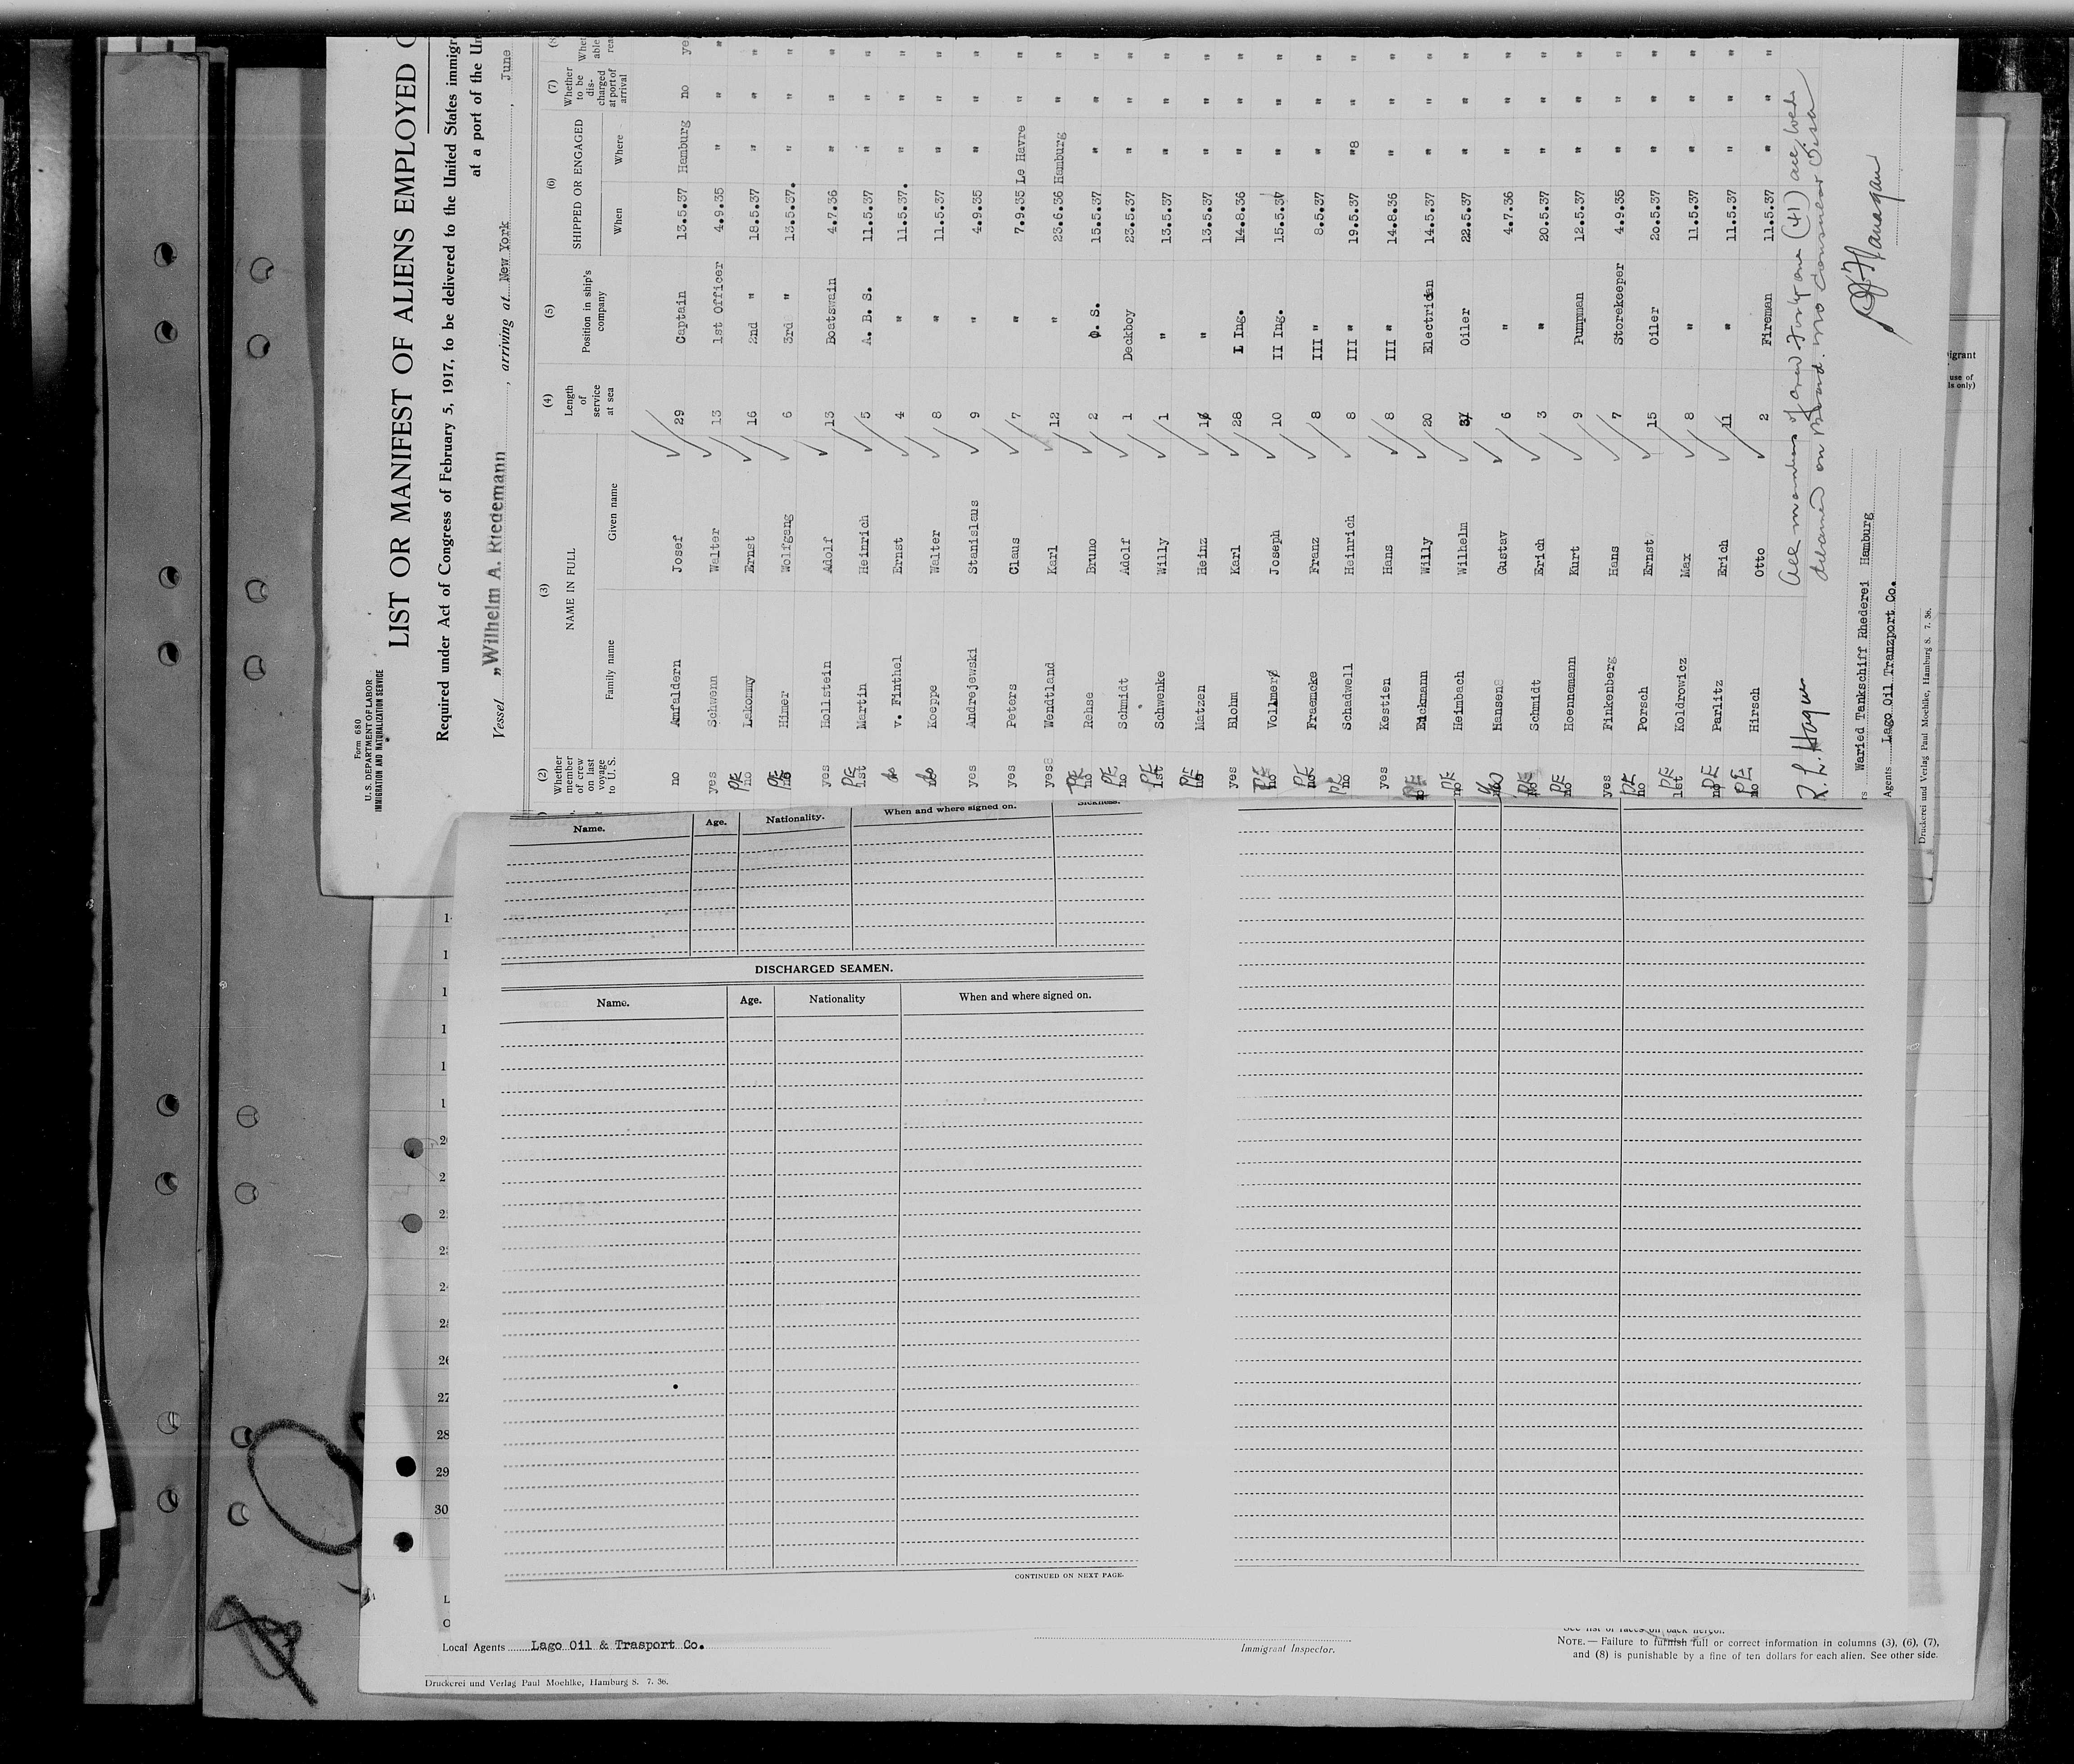 Form 680
U.S. DEPARTMENT OF LABOR
IMMIGRATION AND NATURALIZATION SERVICE
LIST OR MANIFEST OF ALIENS EMPLOYED
Required under Act of Congress of February 5, 1917, to be delivered to the United States
at a port of the
Vessel „Wilhelm A. Riedemann , arriving at New York , June
(2) (3) (4) (5) (6) (7)
Whether member of crew on last voyage to U. S. NAME IN FULL Length of service at sea Position in ship's company SHIPPED OR ENGAGED Whether to be dis-charged at port of arrival
Family name Given name When Where
no Amfaldern Josef 29 Captain 13.5.37 Hamburg no
yes Schwenn Walter 13 1st Officer 4.9.35 " " "
PE no Lakommy Ernst 16 2nd " 18.5.37 " " "
PE Himer Wolfgang 6 3rd " 13.5.37. " " "
yes Hollstein Adolf 13 Boatswain 4.7.36 " " "
PE 1st Martin Heinrich 5 A. B. S. 11.5.37 " " "
v. Finthel Ernst 4 " 11.5.37. " " "
Koeppe Walter 8 " 11.5.37 " " "
yes Andrejewski Stanislaus 9 " 4.9.35 " " "
yes Peters Claus 7 " 7.9.35 Le Havre " "
yes Wendtland Karl 12 " 23.6.36 Hamburg " "
PE no Rehse Bruno 2 O. S. 15.5.37 " " "
PE no Schmidt Adolf 1 Deckboy 23.5.37 " " "
PE 1st Schwenke Willy 1 " 13.5.37 " " "
PE no Matzen Heinz " 13.5.37 " " "
yes Blohm Karl 28 I Ing. 14.8.36 " " "
PE no Vollmer Joseph 10 II Ing. 15.5.37 " " "
PE no Fraemcke Franz 8 III " 8.5.37 " " "
PE no Schadwell Heinrich 8 III " 19.5.37 " " "
yes Kestien Hans 8 III " 14.8.36 " " "
PE no Eickmann Willy 20 Electrician 14.5.37 " " "
PE no Heimbach Wilhelm Oiler 22.5.37 " " "
Hansen Gustav 6 " 4.7.36 " " "
PE no Schmidt Erich 3 " 20.5.37 " " "
PE no Hoennemann Kurt 9 Pumpman 12.5.37 " " "
yes Finkenberg Hans 7 Storekeeper 4.9.35 " " "
PE no Porsch Ernst 15 Oiler 20.5.37 " " "
PE 1st Koldrowicz Max 8 " 11.5.37 " " "
PE no Parlitz Erich 11 " 11.5.37 " " "
PE no Hirsch Otto 2 Fireman 11.5.37 " " "
All members of crew forty one (41) are
on Board. no consular visa
Waried Tankschiff Rhederei Hamburg
Agents Lago Oil Tranzport Co.
Druckerei und Verlag Paul Moehlke, Hamburg 8. 7. 36.
Name. Age. Nationality. When and where signed on. Sickness.
DISCHARGED SEAMEN.
Name. Age. Nationality When and where signed on.
26
27
28
29
30
CONTINUED ON NEXT PAGE.
Local Agents Lago Oil & Trasport Co.
Immigrant Inspector.
See list of races on back hereof.
NOTE.— Failure to furnish full or correct information in columns (3), (6), (7),
and (8) is punishable by a fine of ten dollars for each alien. See other side.
Druckerei und Verlag Paul Moehlke, Hamburg 8. 7. 36.